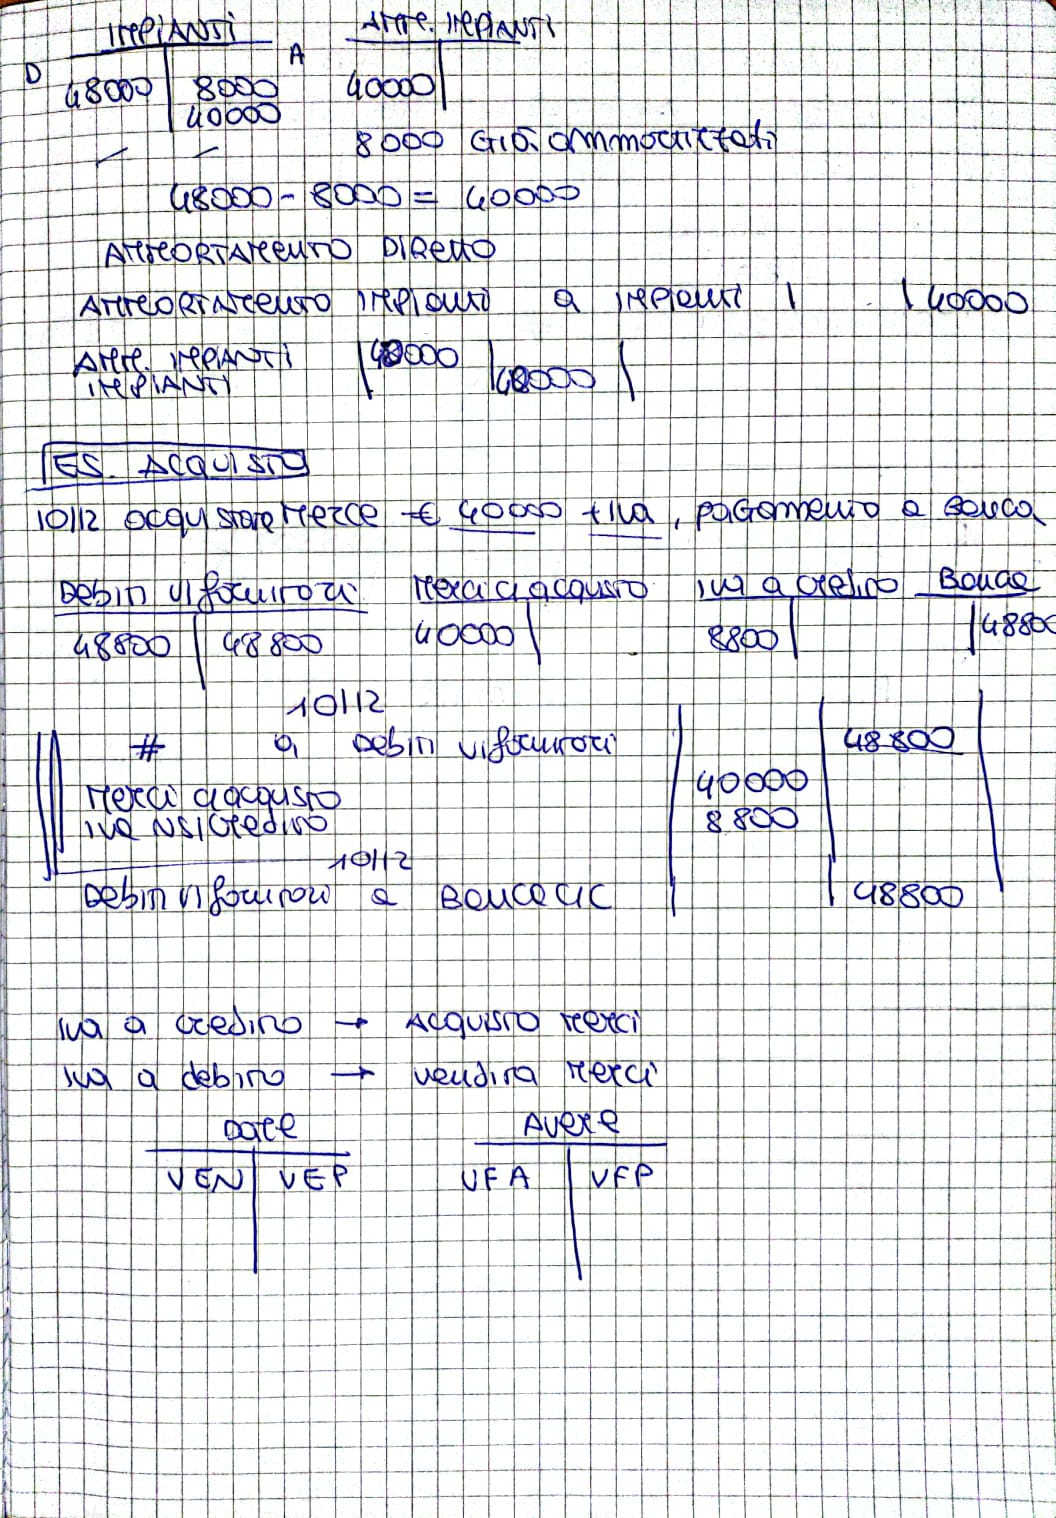 IMPIANTI AMM. IMPIANTI
D A
48000 8000 40000
40000
8000 Già ammortizzati
48000 - 8000 = 40000
AMMORTAMENTO DIRETTO
AMMORTAMENTO IMPIANTI a IMPIANTI 40000
AMM. IMPIANTI 40000
IMPIANTI 40000
ES. ACQUISTO
10/12 acquistare Merce € 40000 + iva, pagamento a Banca
Debiti v/fornitori Merci c/acquisto iva a credito Banca
48800 48800 40000 8800 48800
10/12
# a Debiti v/fornitori 48800
Merci c/acquisto 40000
iva NS/credito 8800
10/12
Debiti v/fornitori a Banca c/c 48800
iva a credito → Acquisto Merci
iva a debito → vendita Merci
Dare Avere
VEN VEP VFA VFP